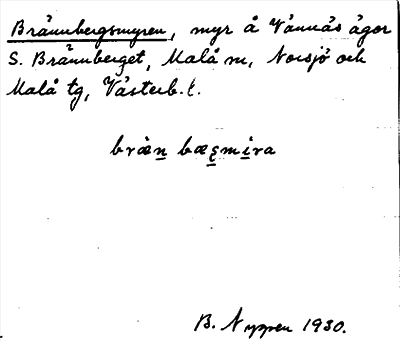 Brännbergsmyren, myr å Vännäs ägor
S. Brännberget, Malå sn, Norsjö och
Malå tg, Västerb. l.
bràn̲ bæs̲mi̲ra
B. Nyppen 1930.